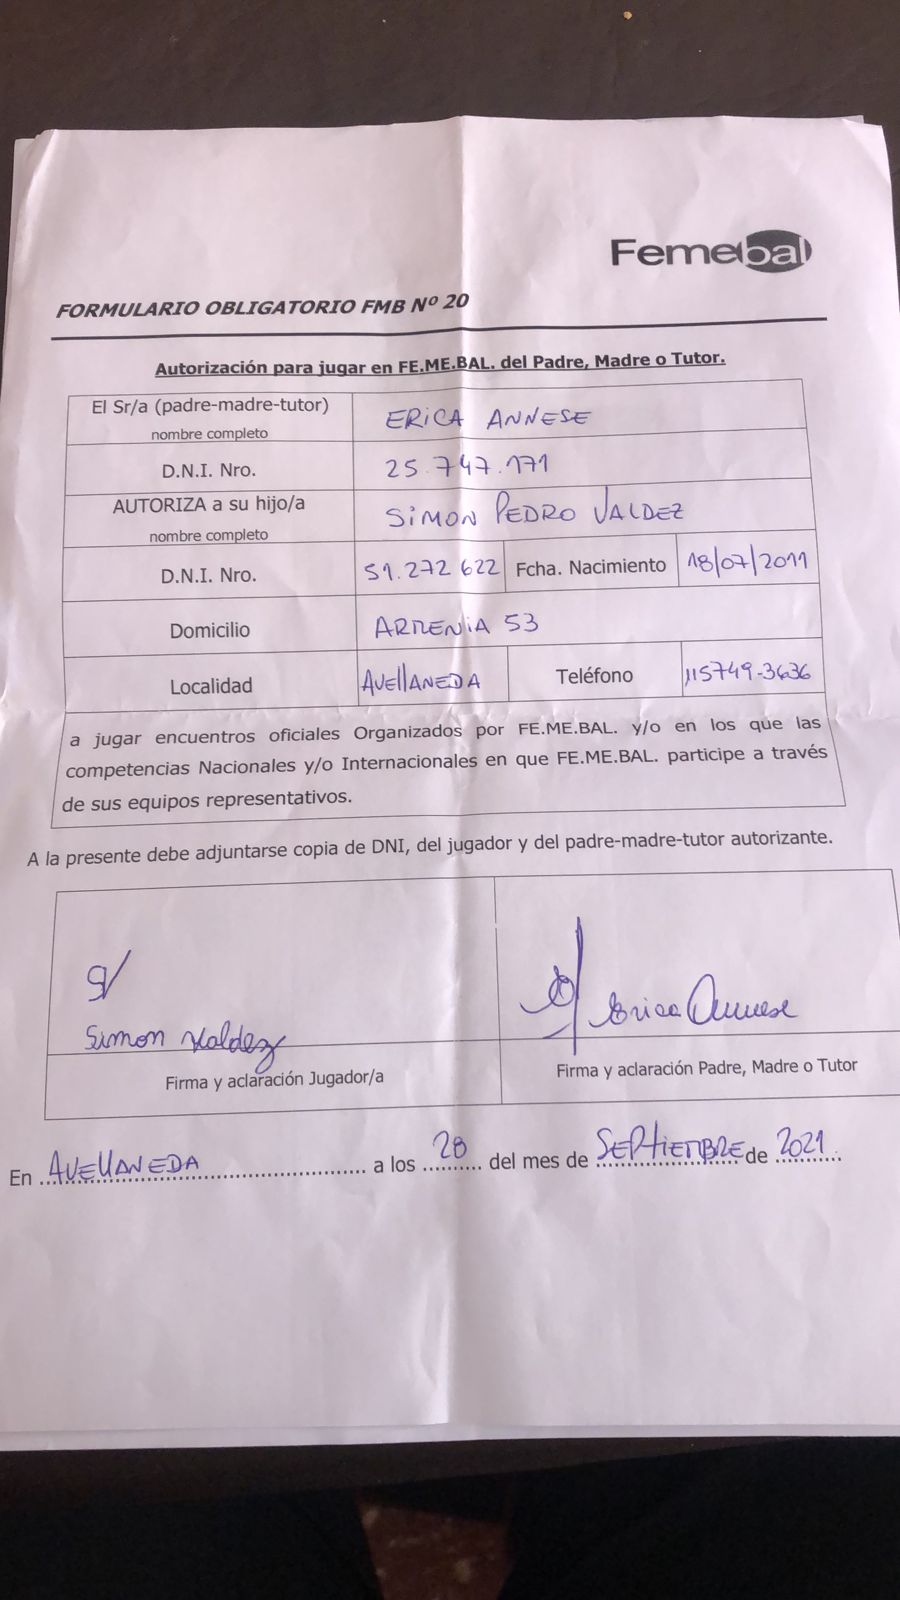 Femebal
FORMULARIO OBLIGATORIO FMB Nº 20
Autorización para jugar en FE.ME.BAL. del Padre, Madre o Tutor.
El Sr/a (padre-madre-tutor)
nombre completo
ERICA ANNESE
D.N.I. Nro.
25.747.171
AUTORIZA a su hijo/a
nombre completo
SIMON PEDRO VALDEZ
D.N.I. Nro.
51.272 622
Fcha. Nacimiento
18/07/2011
Domicilio
ARMENIA 53
Localidad
AVELLANEDA
Teléfono
115749-3636
a jugar encuentros oficiales Organizados por FE.ME.BAL. y/o en los que las
competencias Nacionales y/o Internacionales en que FE.ME.BAL. participe a través
de sus equipos representativos.
A la presente debe adjuntarse copia de DNI, del jugador y del padre-madre-tutor autorizante.
SV
Simon Valdez
Erica Annese
Firma y aclaración Jugador/a
Firma y aclaración Padre, Madre o Tutor
En AVELLANEDA a los 28 del mes de SEPTIEMBRE de 2021